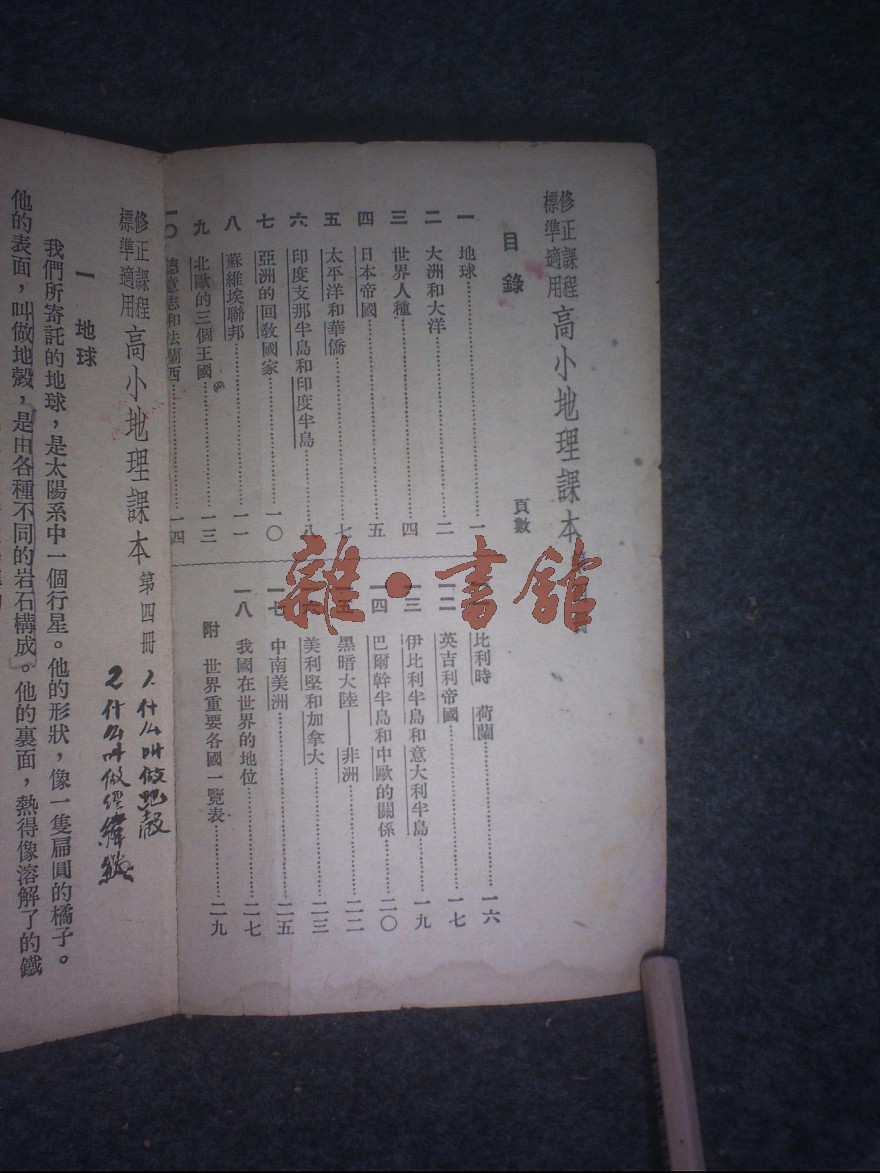 修正課程
標準適用
高小地理課本
目錄
頁數
一 地球 一
二 大洲和大洋 二
三 世界人種 四
四 日本帝國 五
五 太平洋和華僑 七
六 印度支那半島和印度半島 八
七 亞洲的回教國家 一〇
八 蘇維埃聯邦 一一
九 北歐的三個王國 一三
一〇 德意志和法蘭西 一四
比利時 荷蘭 一六
一二 英吉利帝國 一七
一三 伊比利半島和意大利半島 一九
一四 巴爾幹半島和中歐的關係 二〇
一五 黑暗大陸——非洲 二二
美利堅和加拿大 二三
一七 中南美洲 二五
一八 我國在世界的地位 二七
附 世界重要各國一覽表 二九
雜·書館
修正課程
標準適用
高小地理課本 第四冊
1. 什么叫做地殼
2 什么叫做經緯線
一 地球
我們所寄託的地球,是太陽系中一個行星。他的形狀,像一隻扁圓的橘子。
他的表面,叫做地殼,是由各種不同的岩石構成。他的裏面,熱得像溶解了的鐵